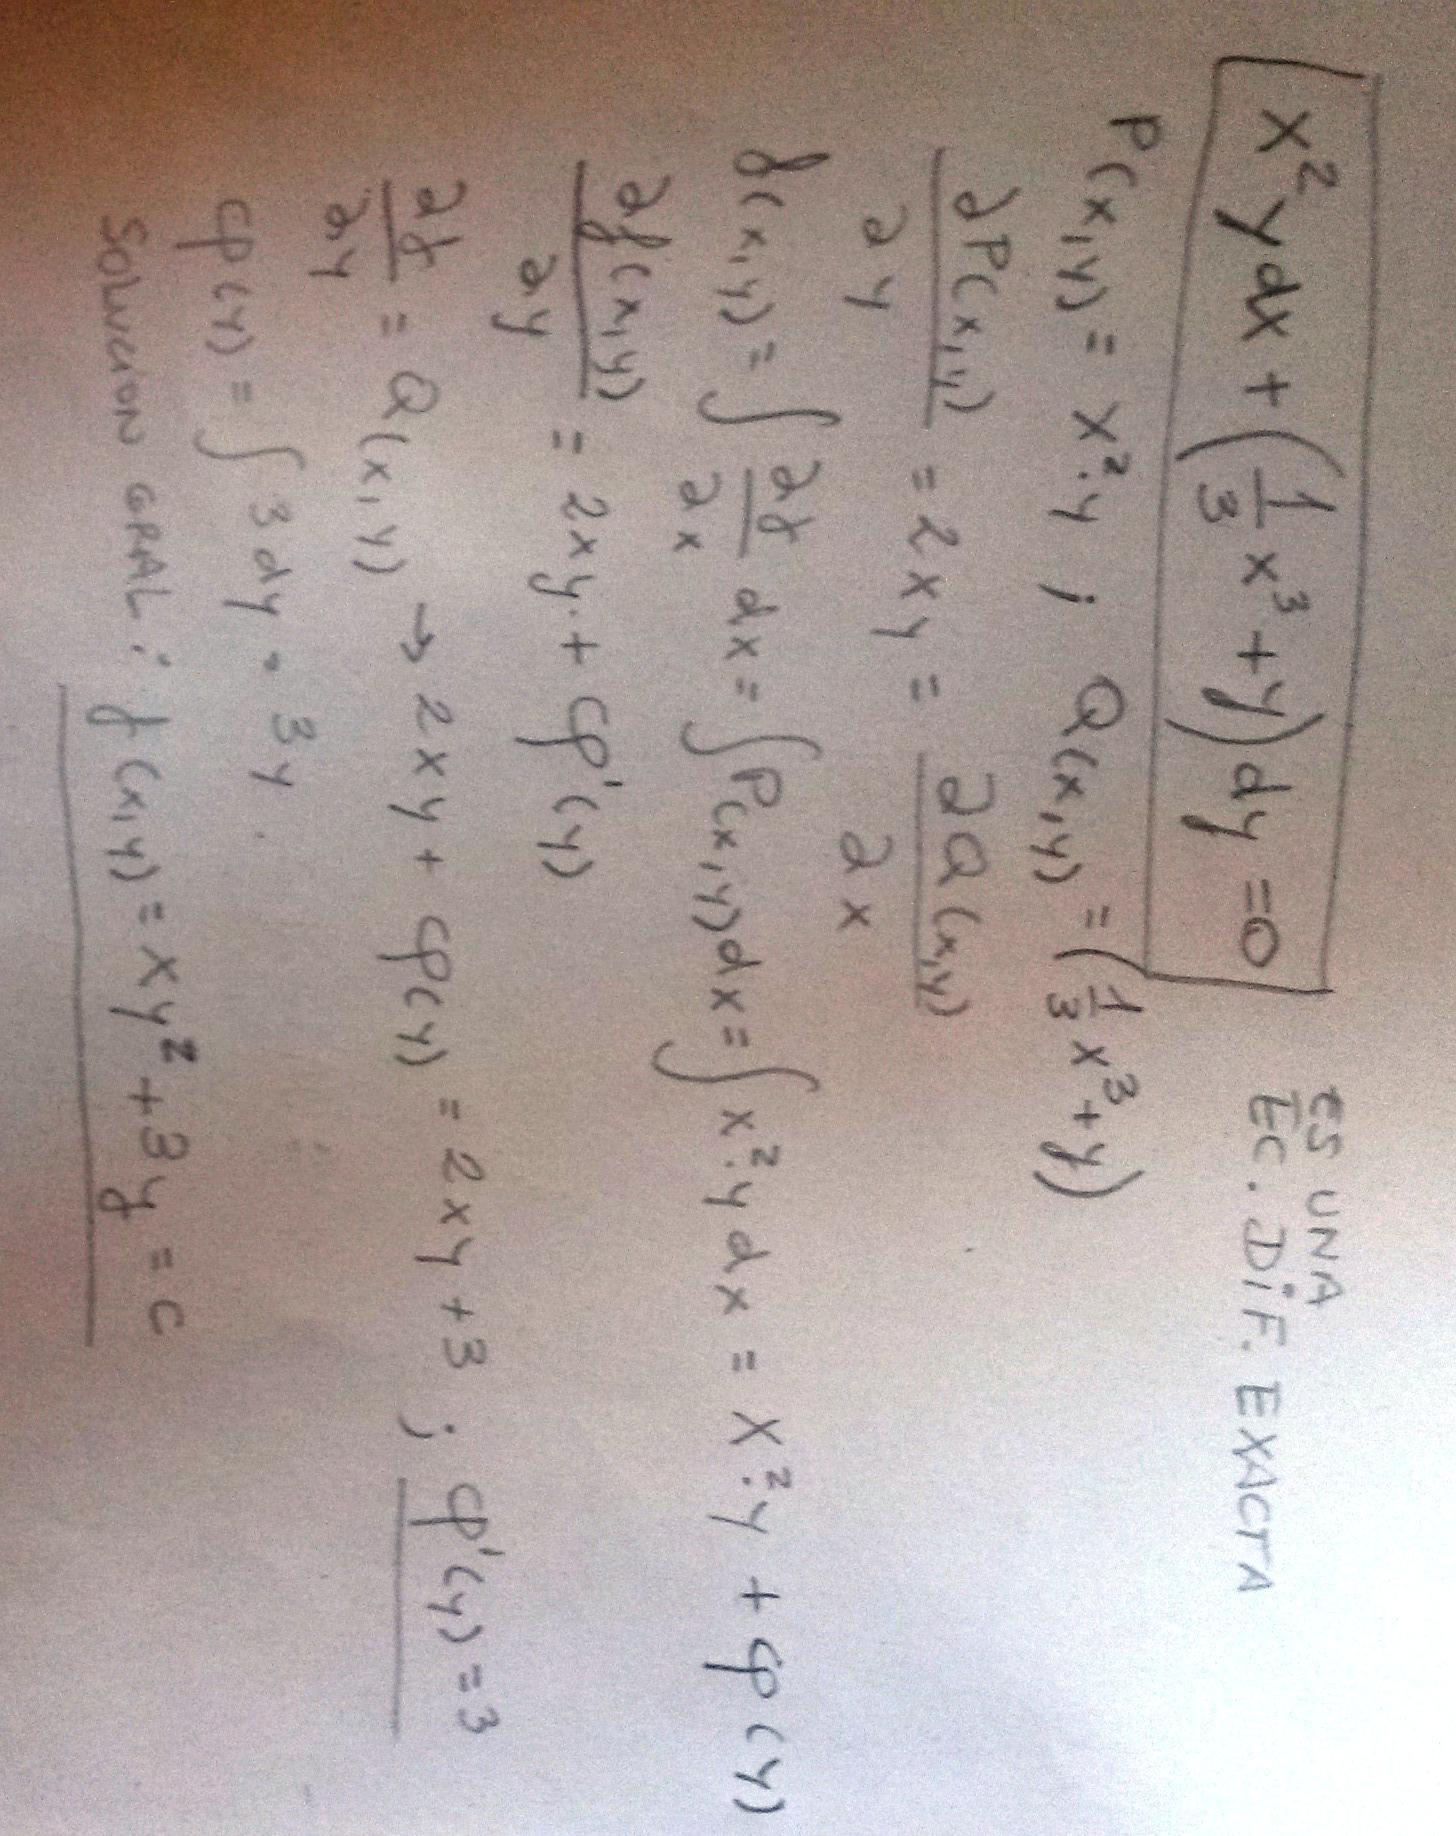 x²ydx + (1/3 x³ + y)dy = 0 ES UNA EC. DIF. EXACTA
P(x,y) = x².y ; Q(x,y) = (1/3 x³ + y)
∂P(x,y)/∂y = 2xy = ∂Q(x,y)/∂x
f(x,y) = ∫ ∂f/∂x dx = ∫P(x,y)dx = ∫ x².y dx = x².y + φ(y)
∂f(x,y)/∂y = 2xy. + φ'(y)
∂f/∂y = Q(x,y) → 2xy + φ(y) = 2xy + 3 ; φ'(y) = 3
φ(y) = ∫ 3dy = 3y.
SOLUCION GRAL: f(x,y) = xy² + 3y = c